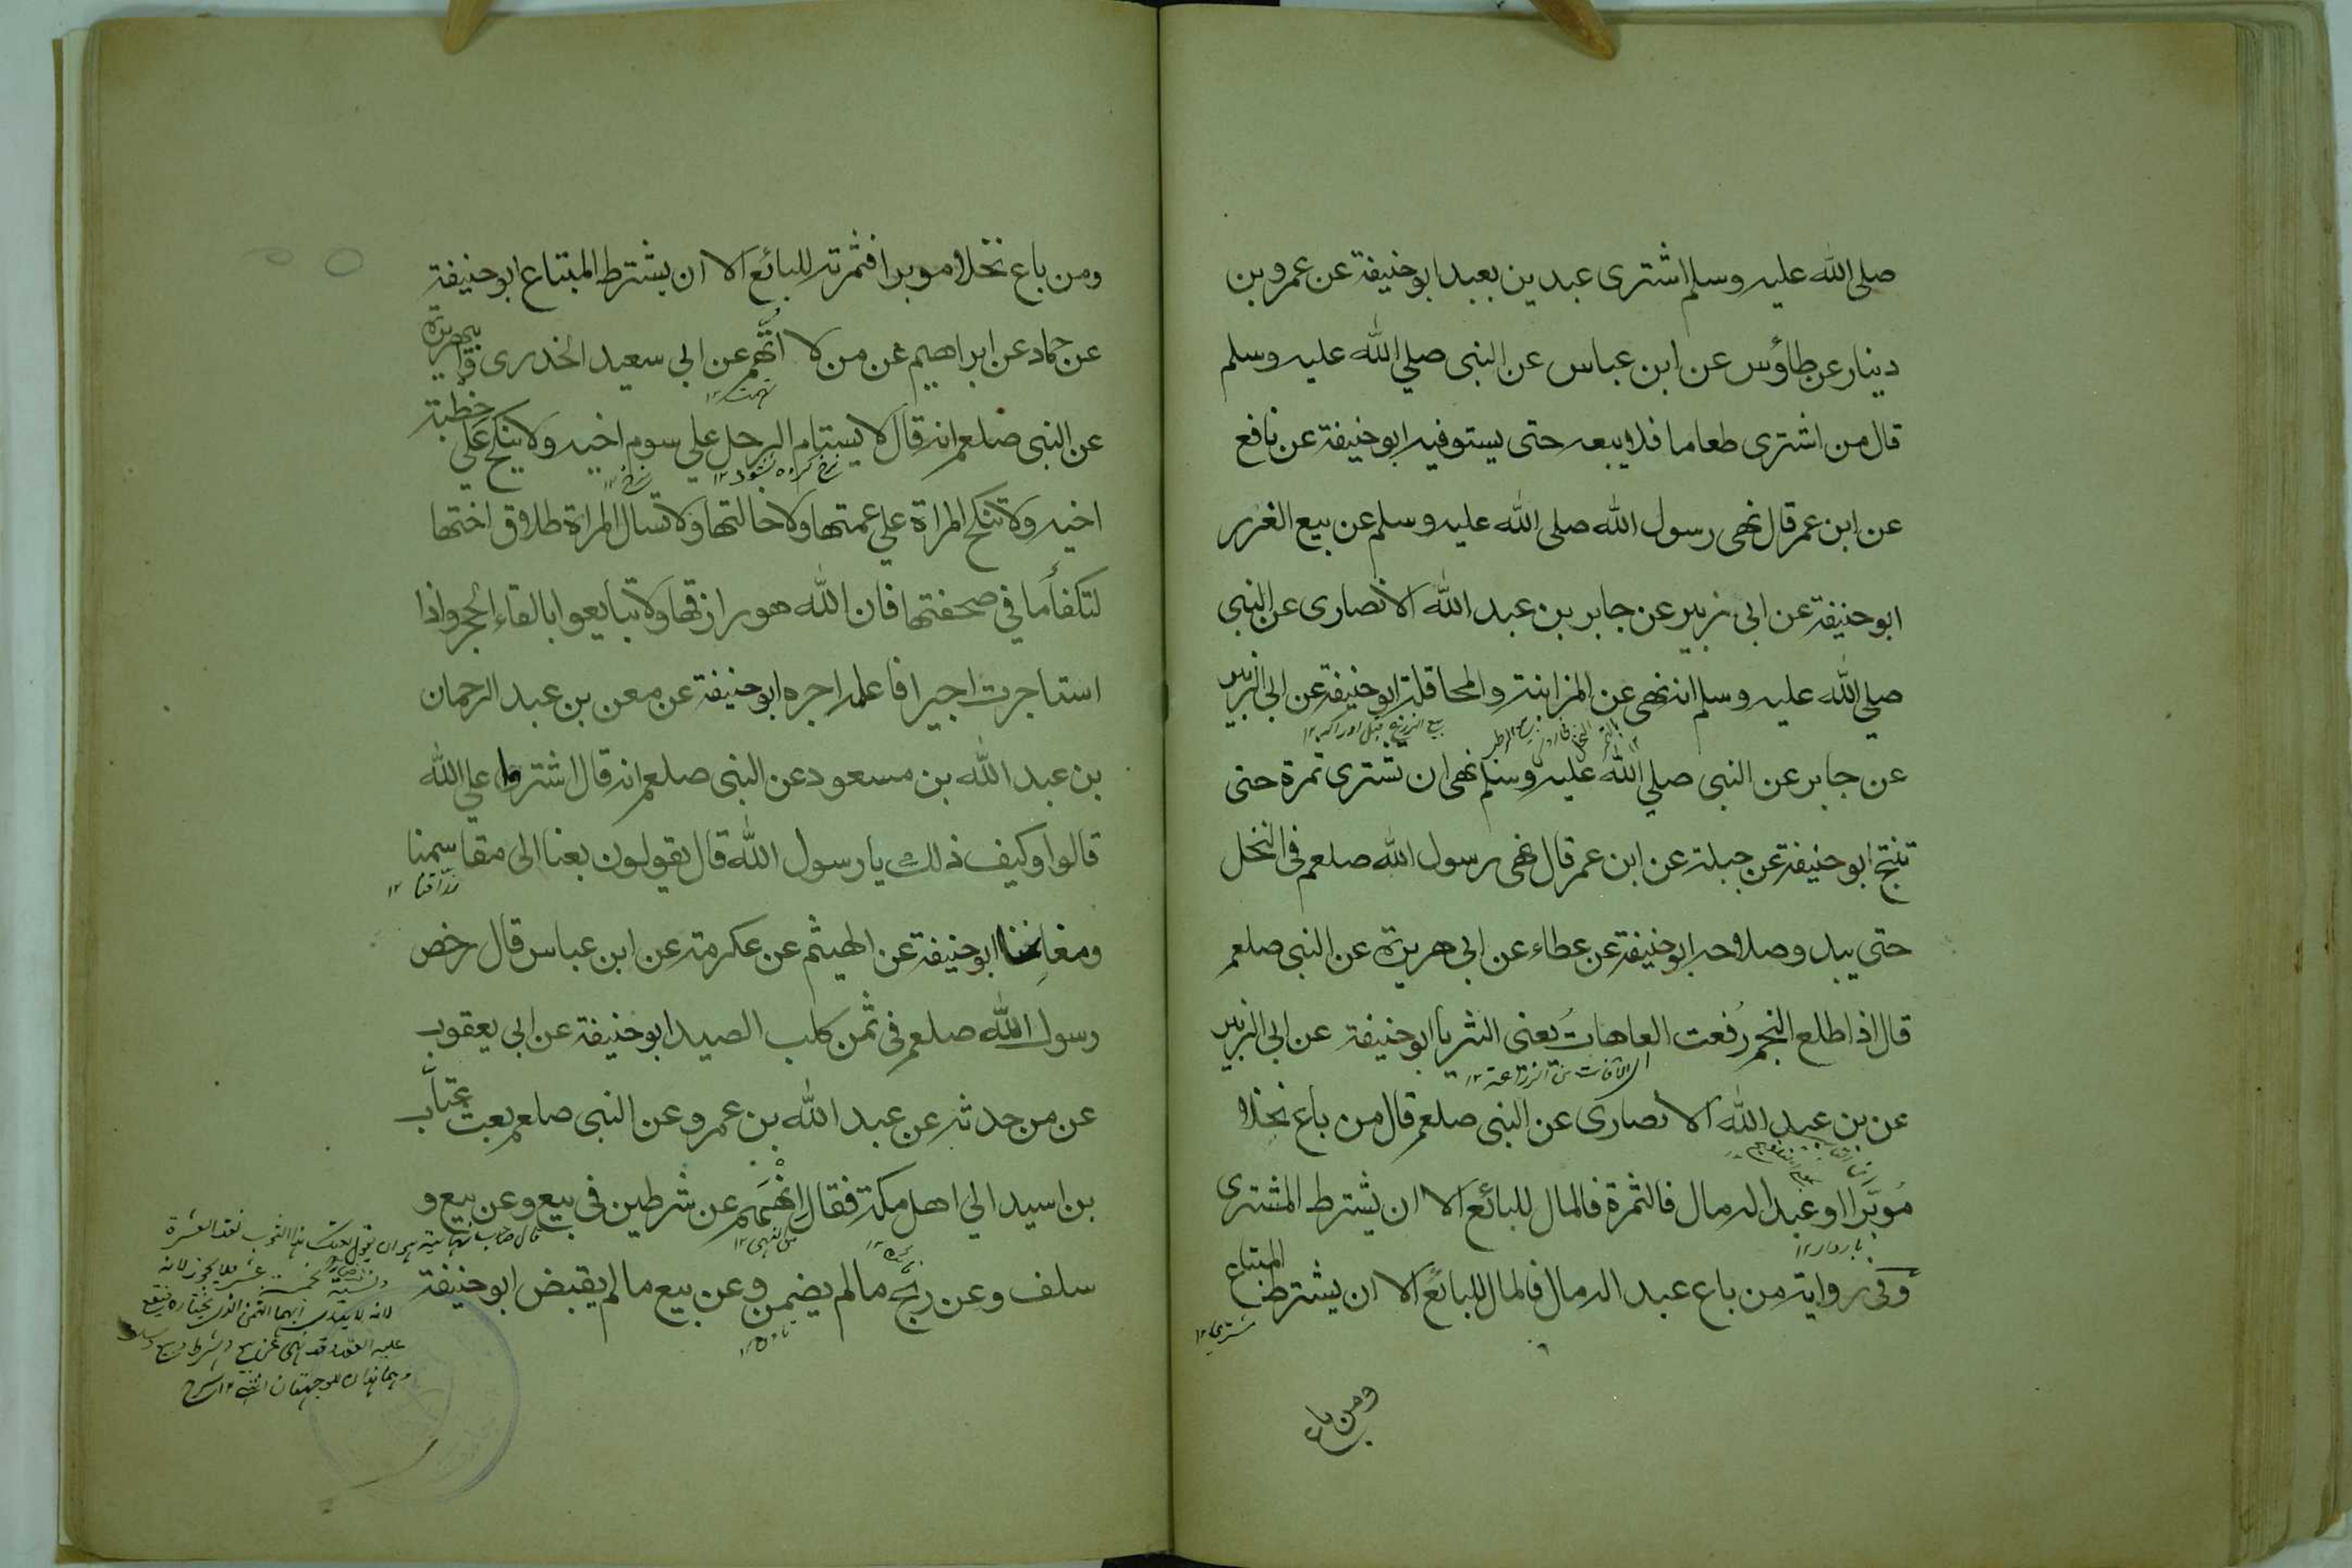 صلى الله عليه وسلم اشترى عبدين بعبد ابو حنيفة عن عمرو بن
دينار عن طاؤس عن ابن عباس عن النبى صلي الله عليه وسلم
قال من اشترى طعاما فلا يبعه حتى يستوفيه ابو حنيفة عن نافع
عن ابن عمر قال نهى رسول الله صلى الله عليه وسلم عن بيع الغرر
ابو حنيفة عن ابى زبير عن جابر بن عبد الله الانصارى عن النبى
صلي الله عليه وسلم انه نهى عن المزابنة والمحاقلة ابو حنيفة عن ابي الزبير
بيع الزرع قبل ادراكه ١٢
عن جابر عن النبى صلي الله عليه وسلم نهى ان تشترى تمرة حتى
تنتج ابو حنيفة عن جبلة عن ابن عمر قال نهى رسول الله صلعم فى النخل
حتى يبدو صلاحه ابو حنيفة عن عطاء عن ابي هريرة عن النبى صلعم
قال اذا طلع النجم رُفعت العاهاتُ يعنى الثريا ابو حنيفة عن ابى الزبير
الآفات من الزراعة ١٢
عن بن عبد الله الانصارى عن النبى صلعم قال من باع نخلا
مُوبَّرا او عبدا له مال فالثمرة فالمال للبائع الا ان يشترط المشترى
باردار ١٢
وفى رواية من باع عبد اله مال فالمال للبائع الا ان يشترط المبتاع
مشترى ١٢
ومن باع
ومن باع نخلا موبرا فثمرته للبائع الا ان يشترط المبتاع ابو حنيفة
عن حماد عن ابراهيم عن من لا اتُّهم عن ابي سعيد الخدرى وابى هريرة
تهمت ١٢
عن النبى صلعم انه قال لا يستام الرجل علي سوم اخيه ولا ينكح على خطبة
نرخ كرده نشود ١٢ نرخ ١٢
اخيه ولا تنكح المراة علي عمتها ولا خالتها ولا تسال المراة طلاق اختها
لتكفأ ما في صحفتها فان الله هو رازقها ولا تبايعوا بالقاء الحجر واذا
استاجرت اجيرا فاعلمه اجره ابو حنيفة عن معن بن عبد الرحمان
بن عبد الله بن مسعود عن النبى صلعم انه قال اشتروا علي الله
قالوا وكيف ذلك يا رسول الله قال يقولون بعنا الى مقاسمنا
رزاقنا ١٢
ومغانمنا ابو حنيفة عن الهيثم عن عكرمة عن ابن عباس قال رخص
رسول الله صلعم فى ثمن كلب الصيد ابو حنيفة عن ابى يعقوب
عن من حدثه عن عبد الله بن عمرو عن النبى صلعم بعث عتاب
بن اسيد الي اهل مكة فقال انْهَهُم عن شرطين في بيع وعن بيع و
من النهى ١٢
سلف وعن ربح ما لم يضمن وعن بيع ما لم يقبض ابو حنيفة